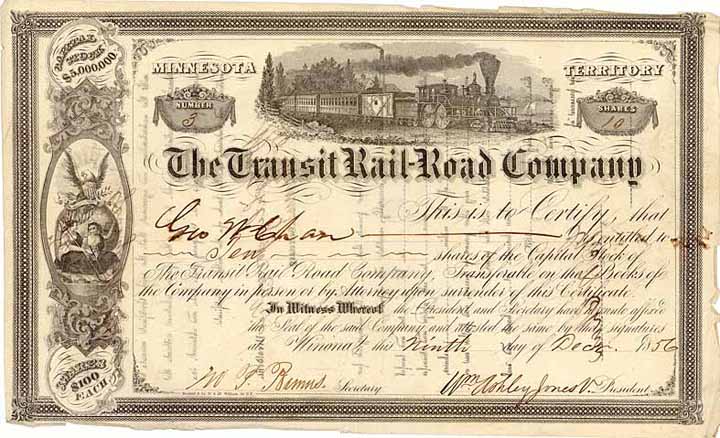 CAPITAL STOCK
$5,000,000.
MINNESOTA TERRITORY
NUMBER
3
SHARES
10
The Transit Rail-Road Company
This is to Certify, that
Geo W is entitled to
Ten shares of the Capital Stock of
The Transit Rail Road Company, Transferable on the Books of
the Company in person or by Attorney upon surrender of this Certificate.
In Witness Whereof the President and Secretary have hereunto affixed
the Seal of the said Company and attested the same by their signatures
at Winona, the Ninth day of Decr. 1856
Secretary
Wm Ashley Jones V. President
SHARES
$100
EACH